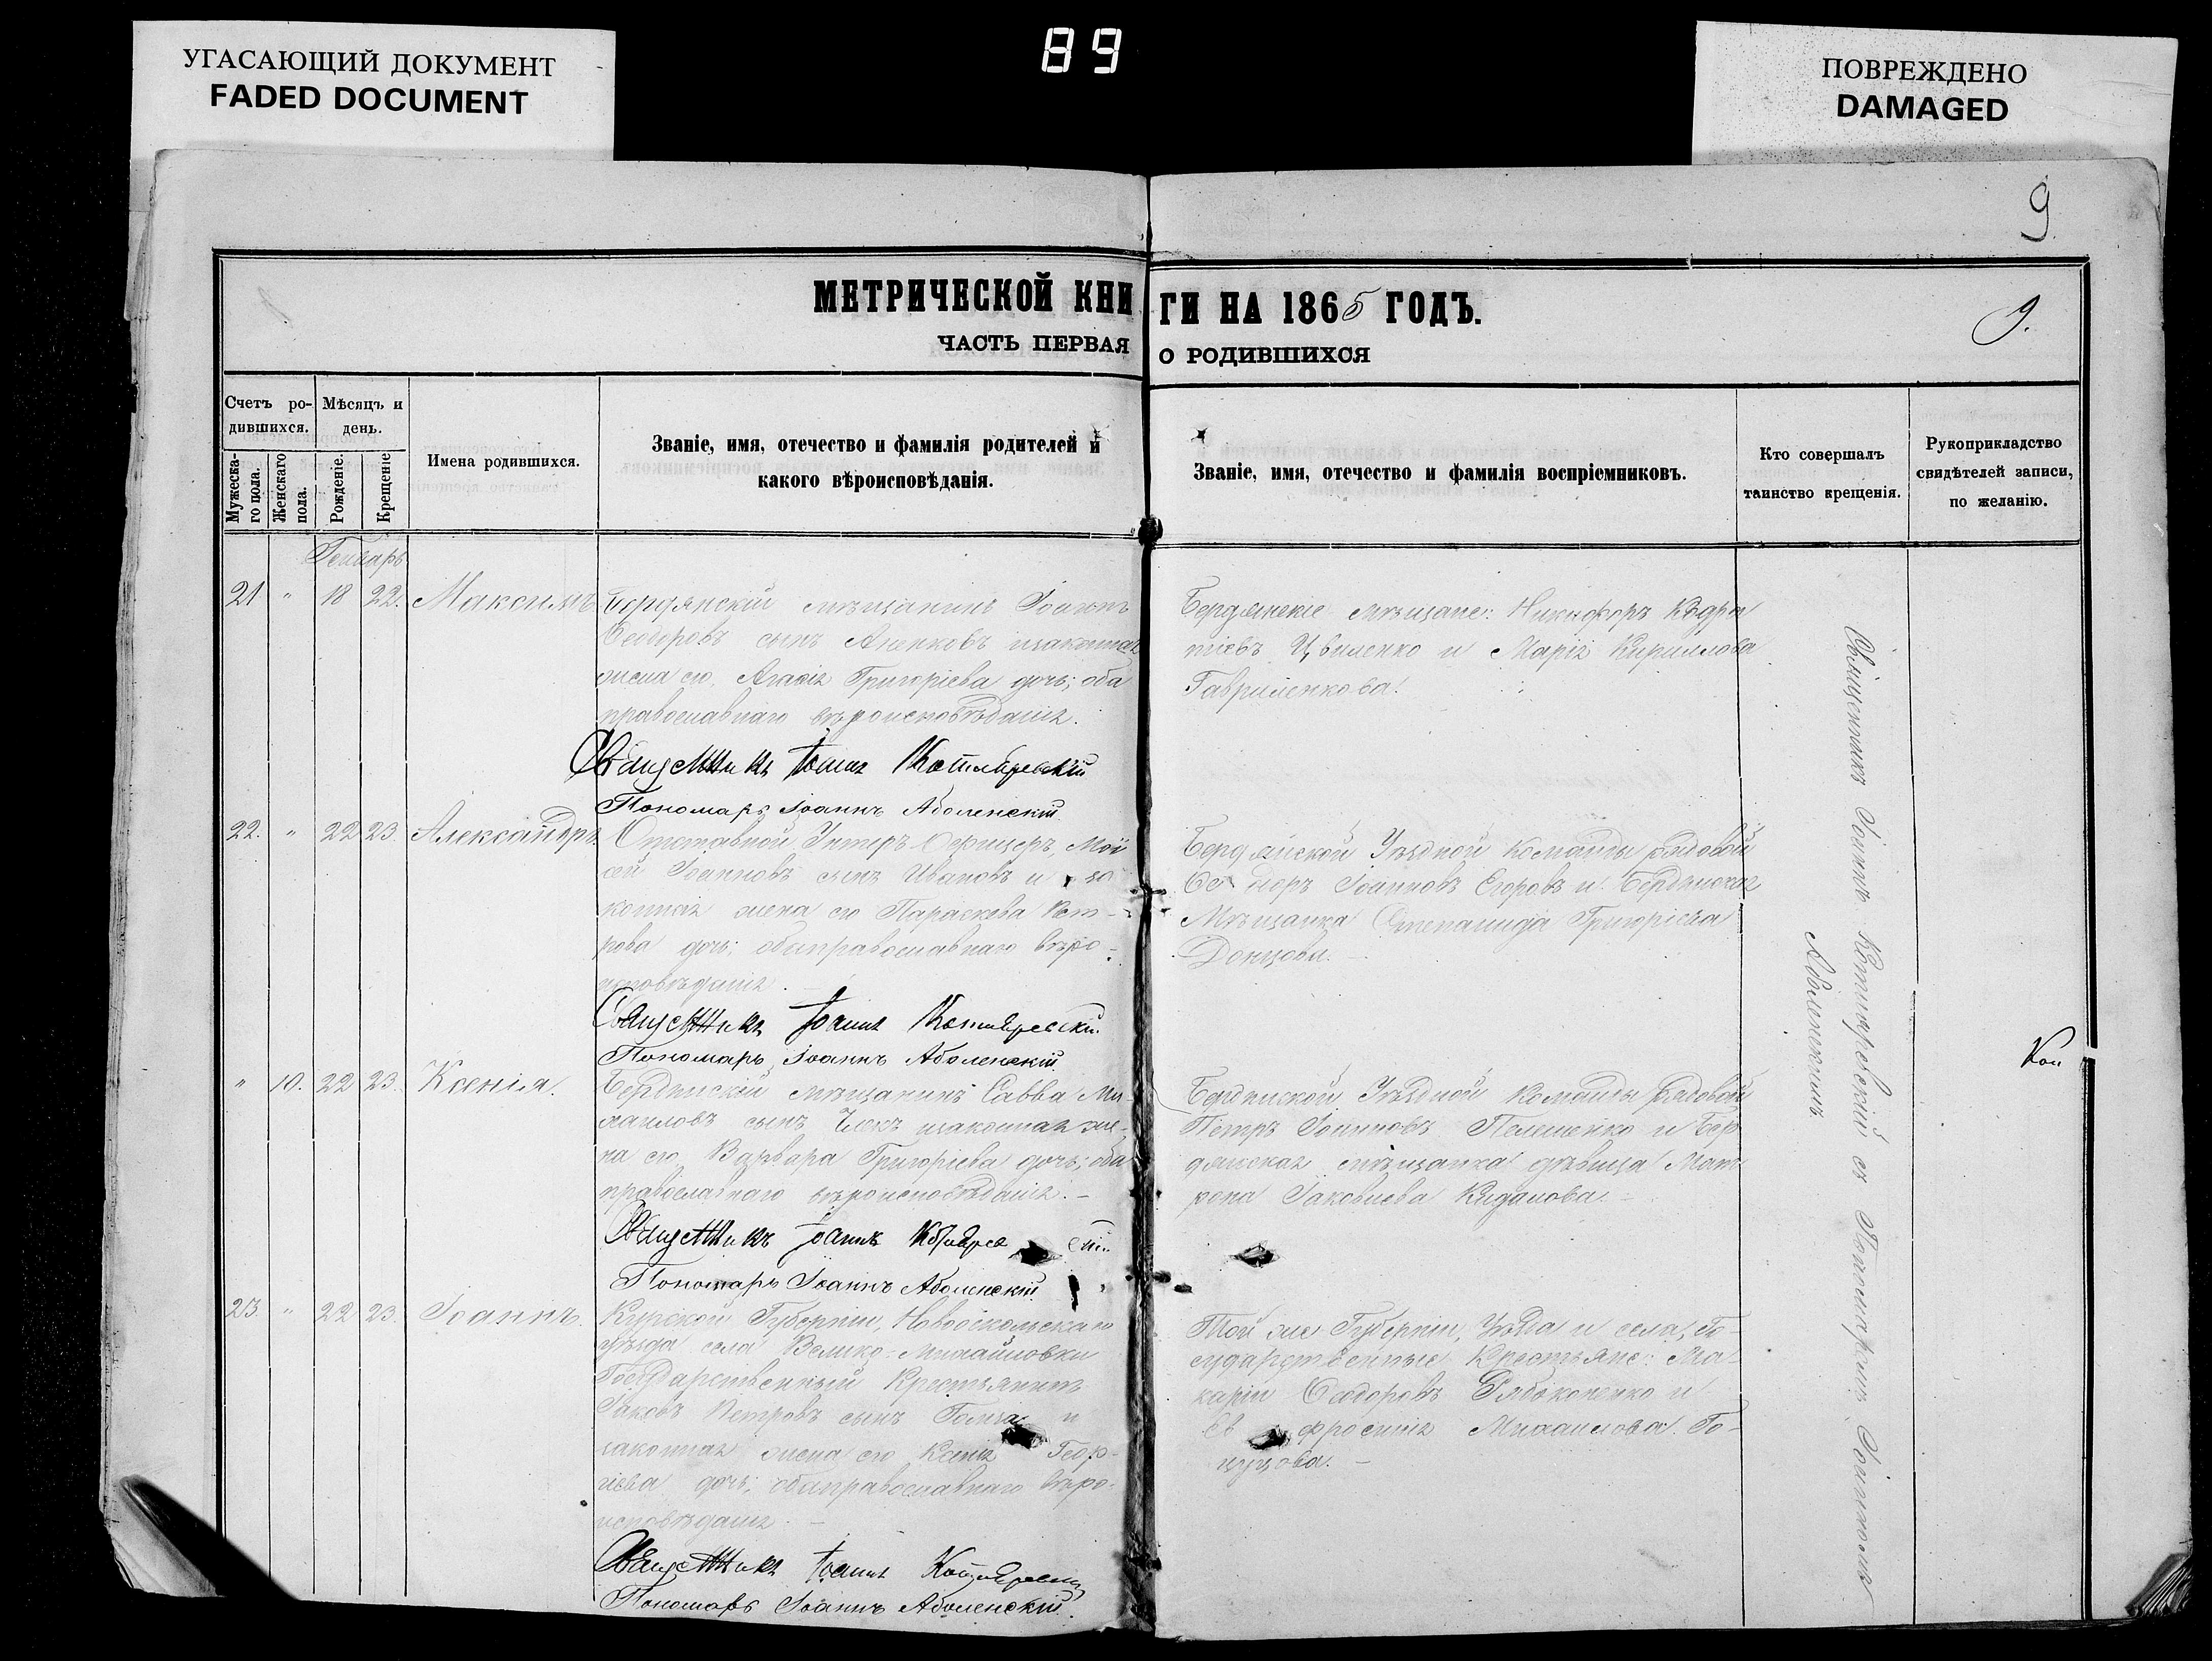 УГАСАЮЩИЙ ДОКУМЕНТ
FADED DOCUMENT
89
ПОВРЕЖДЕНО
DAMAGED
9.
МЕТРИЧЕСКОЙ КНИГИ НА 1865 ГОДЪ.
9.
ЧАСТЬ ПЕРВАЯ О РОДИВШИХСЯ
Счетъ ро-
дившихся.
Мужеска-
го пола.
Женскаго
пола.
Мѣсяцъ и
день.
Рожденіе.
Крещеніе
Имена родившихся.
Званіе, имя, отечество и фамилія родителей и
какого вѣроисповѣданія.
Званіе, имя, отечество и фамилія воспріемниковъ.
Кто совершалъ
таинство крещенія.
Рукоприкладство
свидѣтелей записи,
по желанію.
Генварь
21 " 18 22. Максимъ
Бердянскій мѣщанинъ Іоаннъ
Ѳеодоровъ сынъ изаконная
жена его Григоріева дочь; оба
православнаго вѣроисповѣданія.
Священникъ Іоаннъ Котляревскій
Пономарь Іоаннъ Аболенскій
Бердянскіе мѣщане: Никифоръ
Цвиленко и Марія Кириллова
Гавриленкова.
22. " 22 23 Александръ
Отставной Унтеръ-Офицеръ, Мои
сей Іоанновъ сынъ Ивановъ и за
конная жена его Параскева Пет-
рова дочь; обаправославнаго вѣро-
исповѣданія.
Священникъ Іоаннъ Котляревскій.
Пономарь Іоаннъ Аболенскій
Бердянской Уѣздной команды рядовой
Ѳеодоръ Іоанновъ Егоровъ и Бердянская
Мѣщанка Степанида Григоріева
Донцова.
" 10. 22 23. Ксенія.
Бердянскій мѣщанинъ Савва Ми-
хаиловъ сынъ изаконная же-
на его Варвара Григоріева дочь; оба
православнаго вѣроисповѣданія. -
Священникъ Іоаннъ
Пономарь Іоаннъ Аболенскій
Бердянской Уѣздной команды рядовой
Петръ Іоанновъ Пелешенко и Бер
дянская мѣщанка дѣвица Мат
рона Іаковлева
23. " 22 23. Іоаннъ.
Курской Губерніи, Новооскольскаго
уѣзда села Велико-Михайловки
Государственный Крестьянинъ
Іаковъ Петровъ сынъ и
законная жена его Ксенія Геор-
гіева дочь; обаправославнаго вѣро-
исповѣданія -
Священникъ Іоаннъ Котляревскій
Пономарь Іоаннъ Аболенскій.
Той же Губерніи, Уѣзда и села, Го-
сударственные Крестьяне: Ма-
карій Ѳеодоровъ и
Евфросинія Михаилова Го-
Священникъ Іоаннъ Котляревскій съ Пономаремъ Іоанномъ
Аболенскимъ
Коп